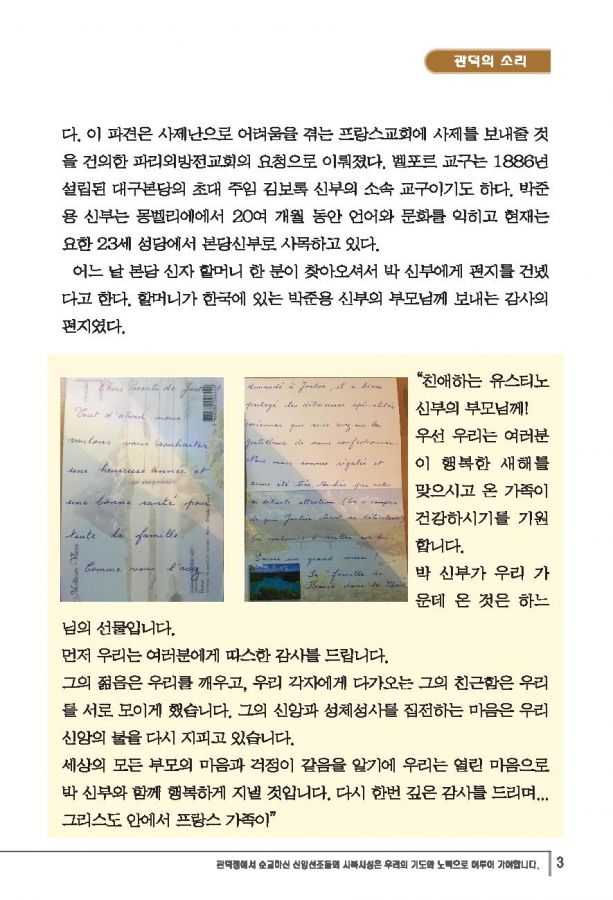 관덕의 소리
다. 이 파견은 사제난으로 어려움을 겪는 프랑스교회에 사제를 보내줄 것
을 건의한 파리외방전교회의 요청으로 이뤄졌다. 벨포르 교구는 1886년
설립된 대구본당의 초대 주임 김보록 신부의 소속 교구이기도 하다. 박준
용 신부는 몽벨리에에서 20여 개월 동안 언어와 문화를 익히고 현재는
요한 23세 성당에서 본당신부로 사목하고 있다.
어느 날 본당 신자 할머니 한 분이 찾아오셔서 박 신부에게 편지를 건넸
다고 한다. 할머니가 한국에 있는 박준용 신부의 부모님께 보내는 감사의
편지였다.
Chers Parents de Justin!
Tout d'abord nous
voulons vous souhaiter
une heureuse année et
une bonne santé pour
toute la famille.
Comme vous l'avez
Meilleurs Vœux
demandé à Justin, il a bien
partagé les délicieuses spécialités
coréennes que vous avez eu la
gentillesse de nous confectionner.
Nous nous sommes régalés et
avons été très touchés par votre
si délicate attention
Encore un grand merci!
La "famille de
France dans le Christ
“친애하는 유스티노
신부의 부모님께!
우선 우리는 여러분
이 행복한 새해를
맞으시고 온 가족이
건강하시기를 기원
합니다.
박 신부가 우리 가
운데 온 것은 하느
님의 선물입니다.
먼저 우리는 여러분에게 따스한 감사를 드립니다.
그의 젊음은 우리를 깨우고, 우리 각자에게 다가오는 그의 친근함은 우리
를 서로 모이게 했습니다. 그의 신앙과 성체성사를 집전하는 마음은 우리
신앙의 불을 다시 지피고 있습니다.
세상의 모든 부모의 마음과 걱정이 같음을 알기에 우리는 열린 마음으로
박 신부와 함께 행복하게 지낼 것입니다. 다시 한번 깊은 감사를 드리며...
그리스도 안에서 프랑스 가족이”
관덕정에서 순교하신 신앙선조들의 시복시성은 우리의 기도와 노력으로 이루어 가야합니다.
3